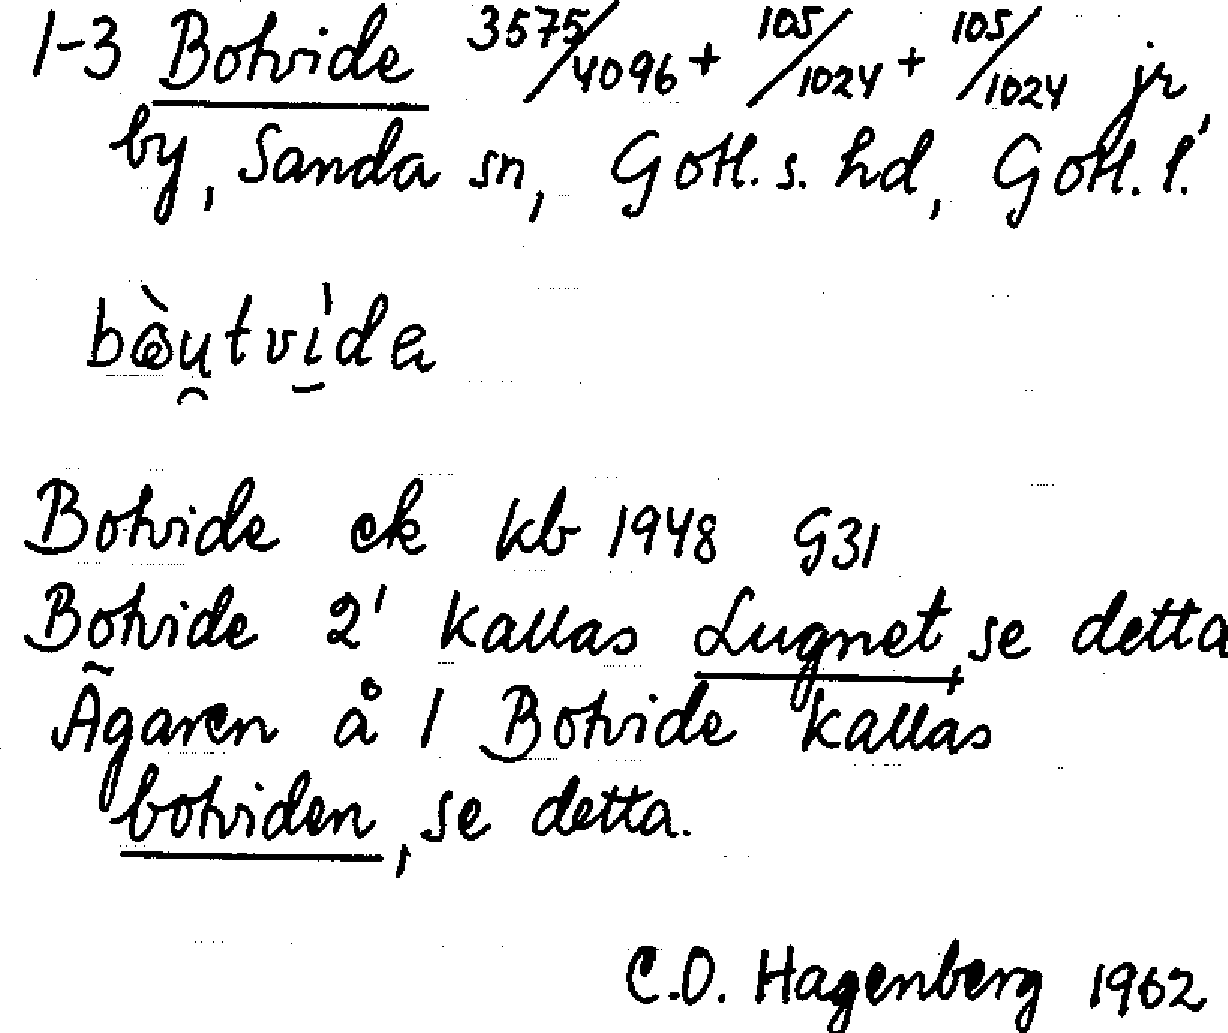 1-3 Botvide 3575/4096 + 105/1024 + 105/1024 jr
by, Sanda sn, Gotl. s. hd, Gotl. l.
Botvide ek kb 1948 G31
Botvide 2' kallas Lugnet, se detta
Ägaren å 1 Botvide kallas
botviden, se detta.
C.O. Hagenberg 1962